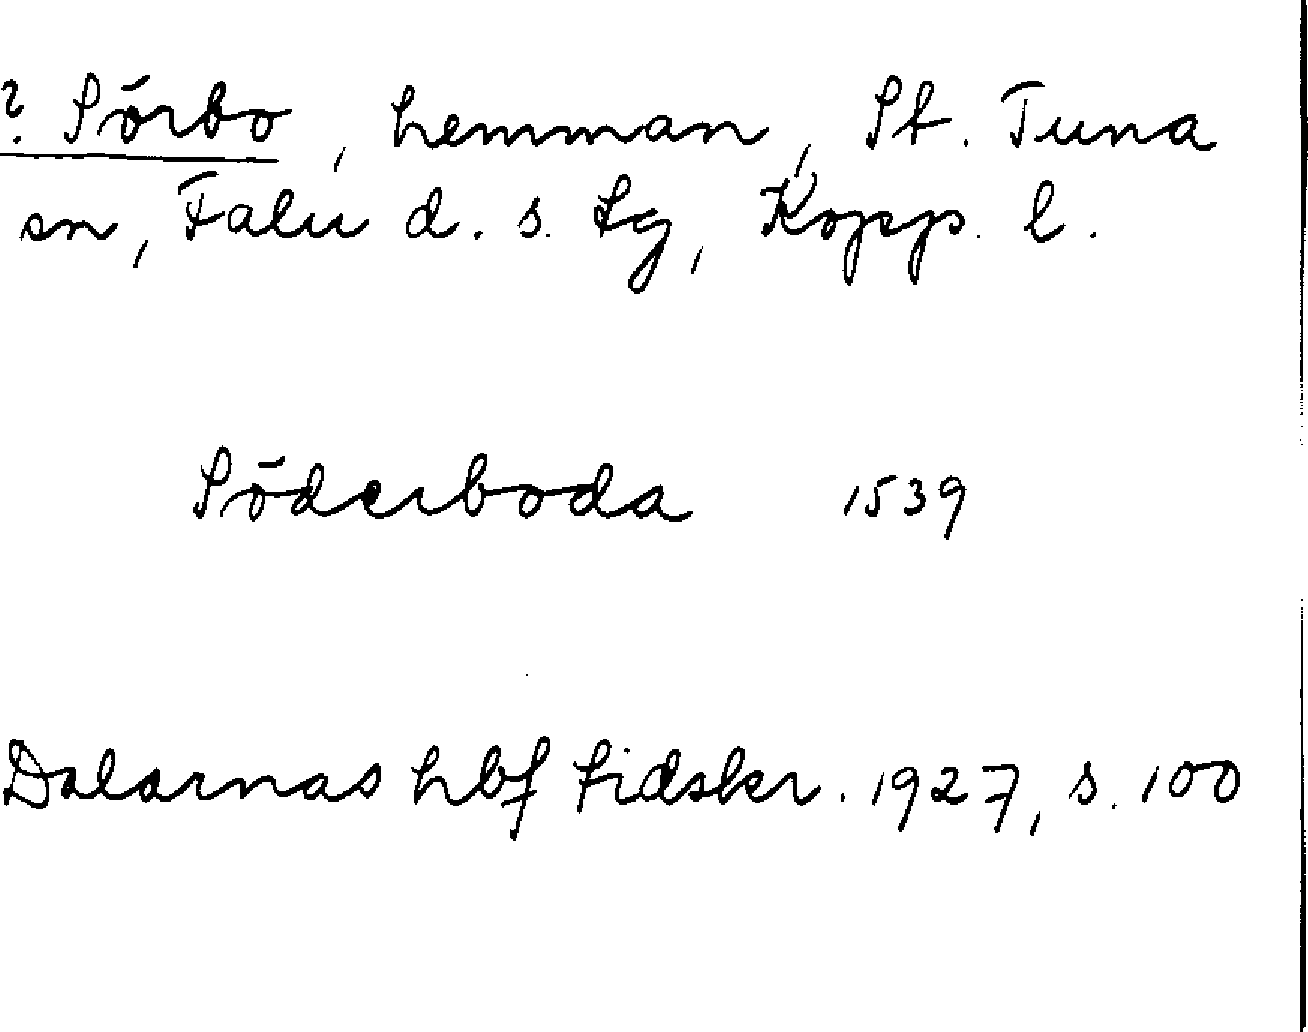 ? Sörbo, hemman, St. Tuna
sn, Falu d. s. tg, Kopp. l.
Söderboda 1539
Dalarnas hbf tidskr. 1927, s. 100